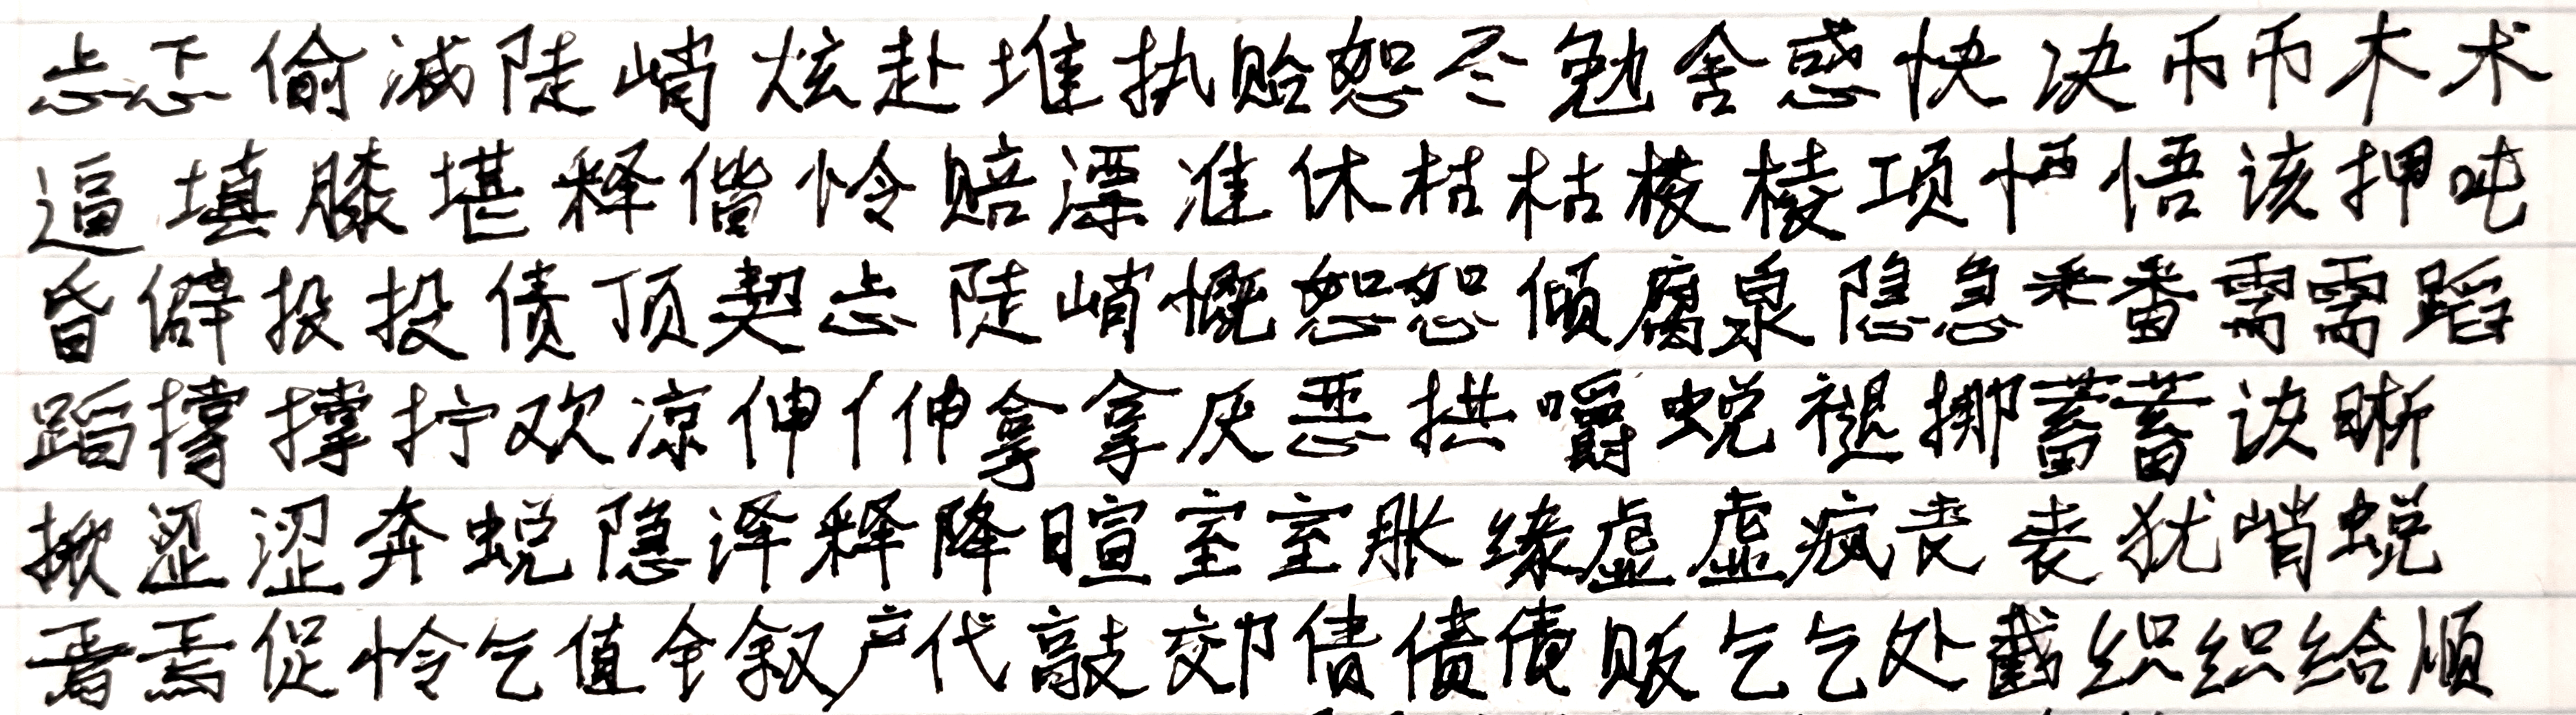 忐忑偷减陡峭炫赴堆执贻恕尽勉舍惑快决币币木术
逼填膝堪释偿怜赔漂准休枯枯棱棱项悟悟该押吨
昏僻投投债顶契忐陡峭慨恕恕倾腐泉隐急番需需蹈
蹈撑撑拧欢凉伸伸拿拿厌恶拱嚼蜕褪挪蓄蓄诀晰
掀涩涩奔蜕隐译释降暄室室胀缘虚虚疯丧丧犹峭蜕
焉焉促怜乞值全叙产代敲郊债债债贩乞乞处截织织给顺